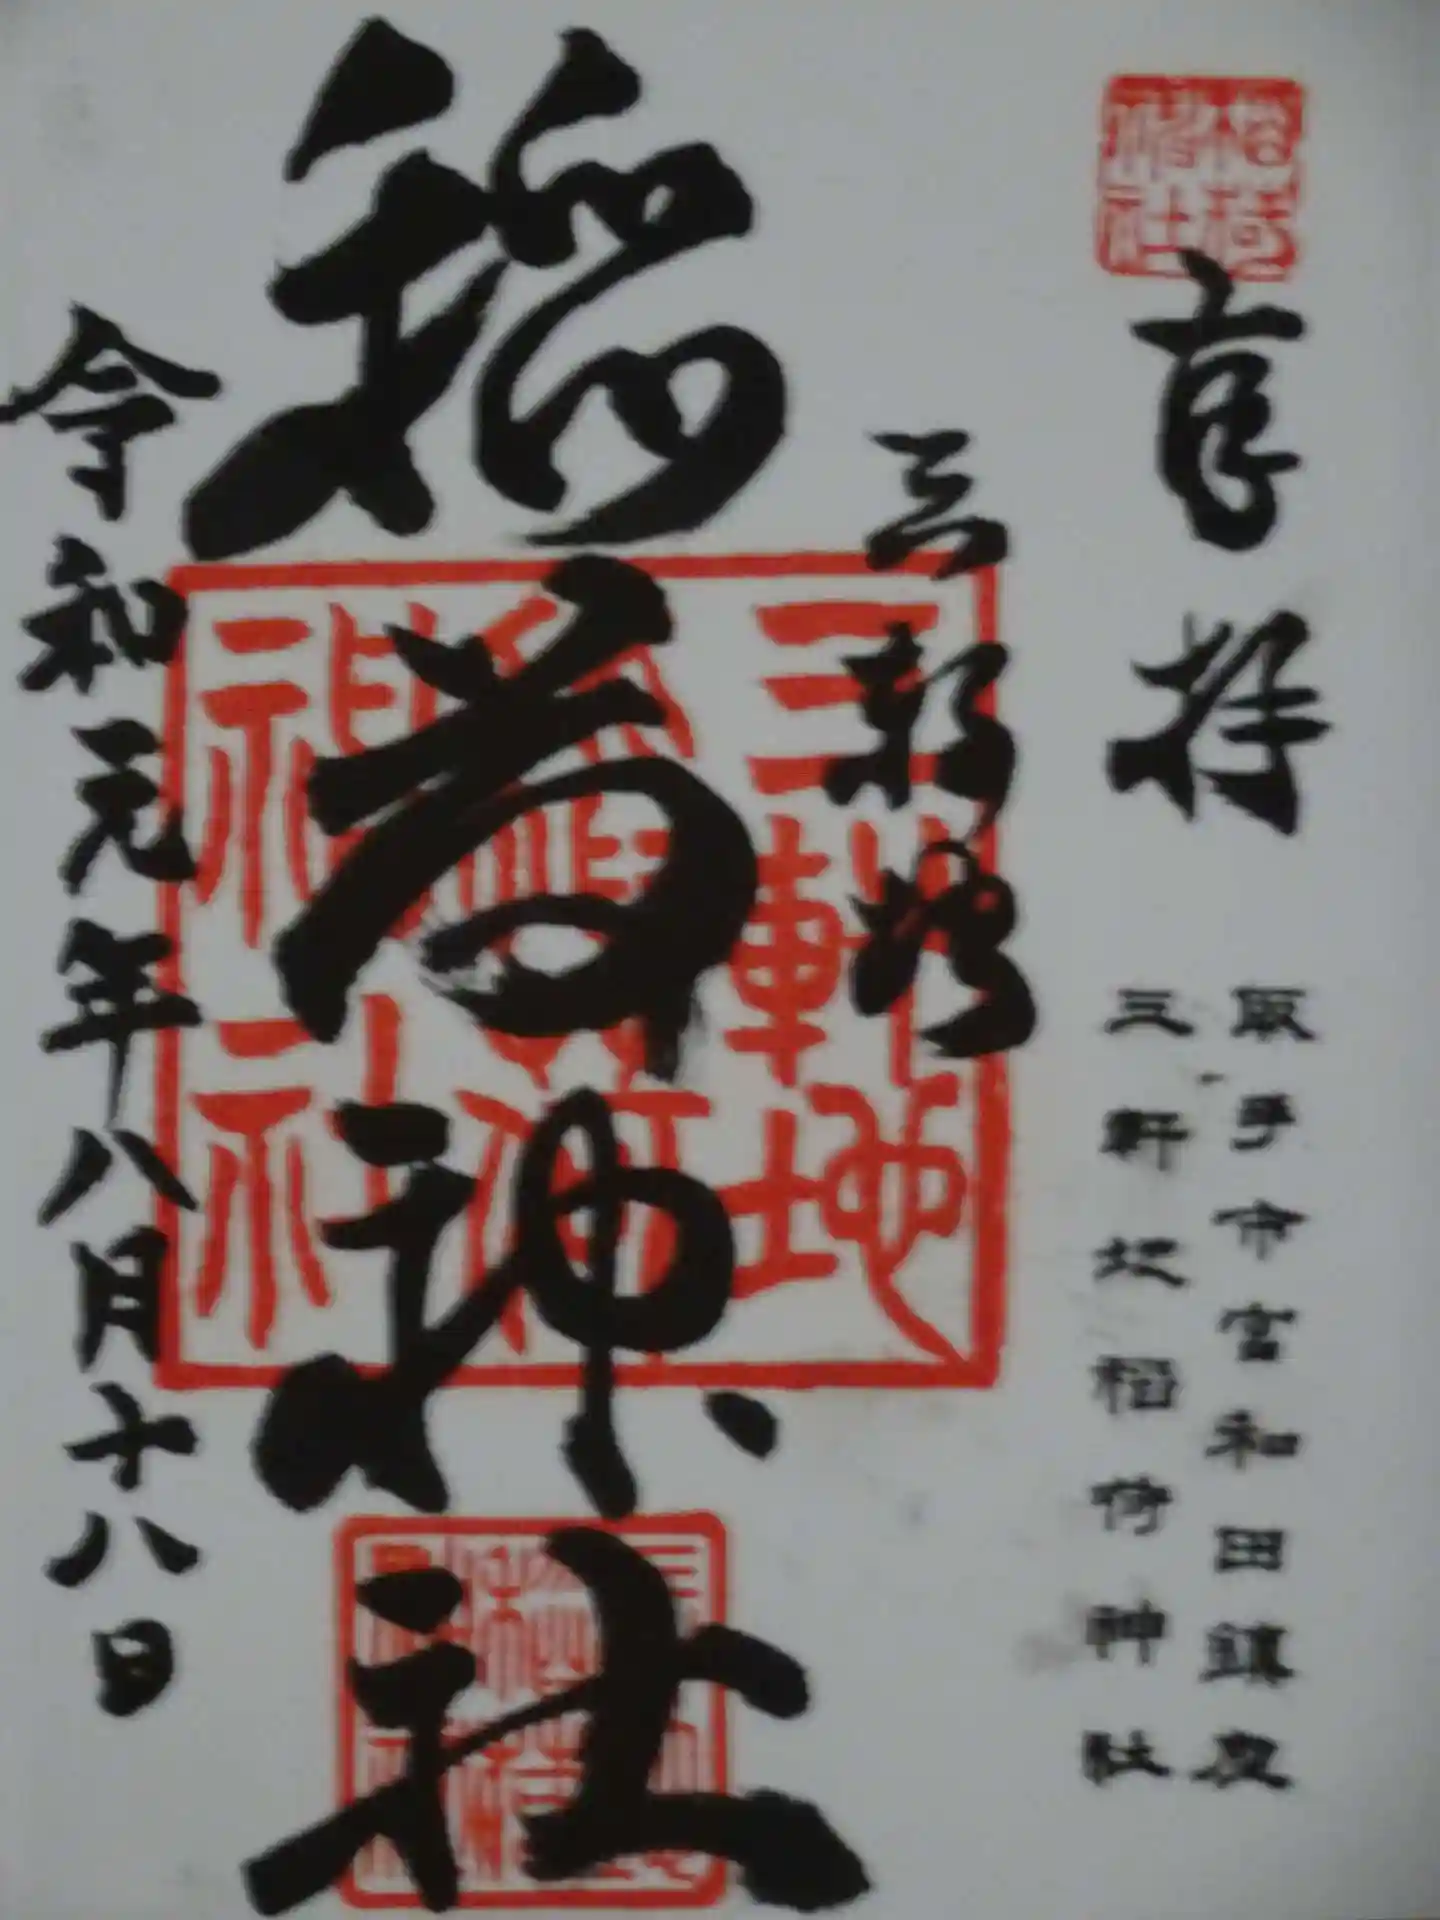 奉拝
取手市宮和田鎮座
三軒地稲荷神社
三軒地
稲荷神社
三軒地
稲荷
神社
令和元年八月十八日